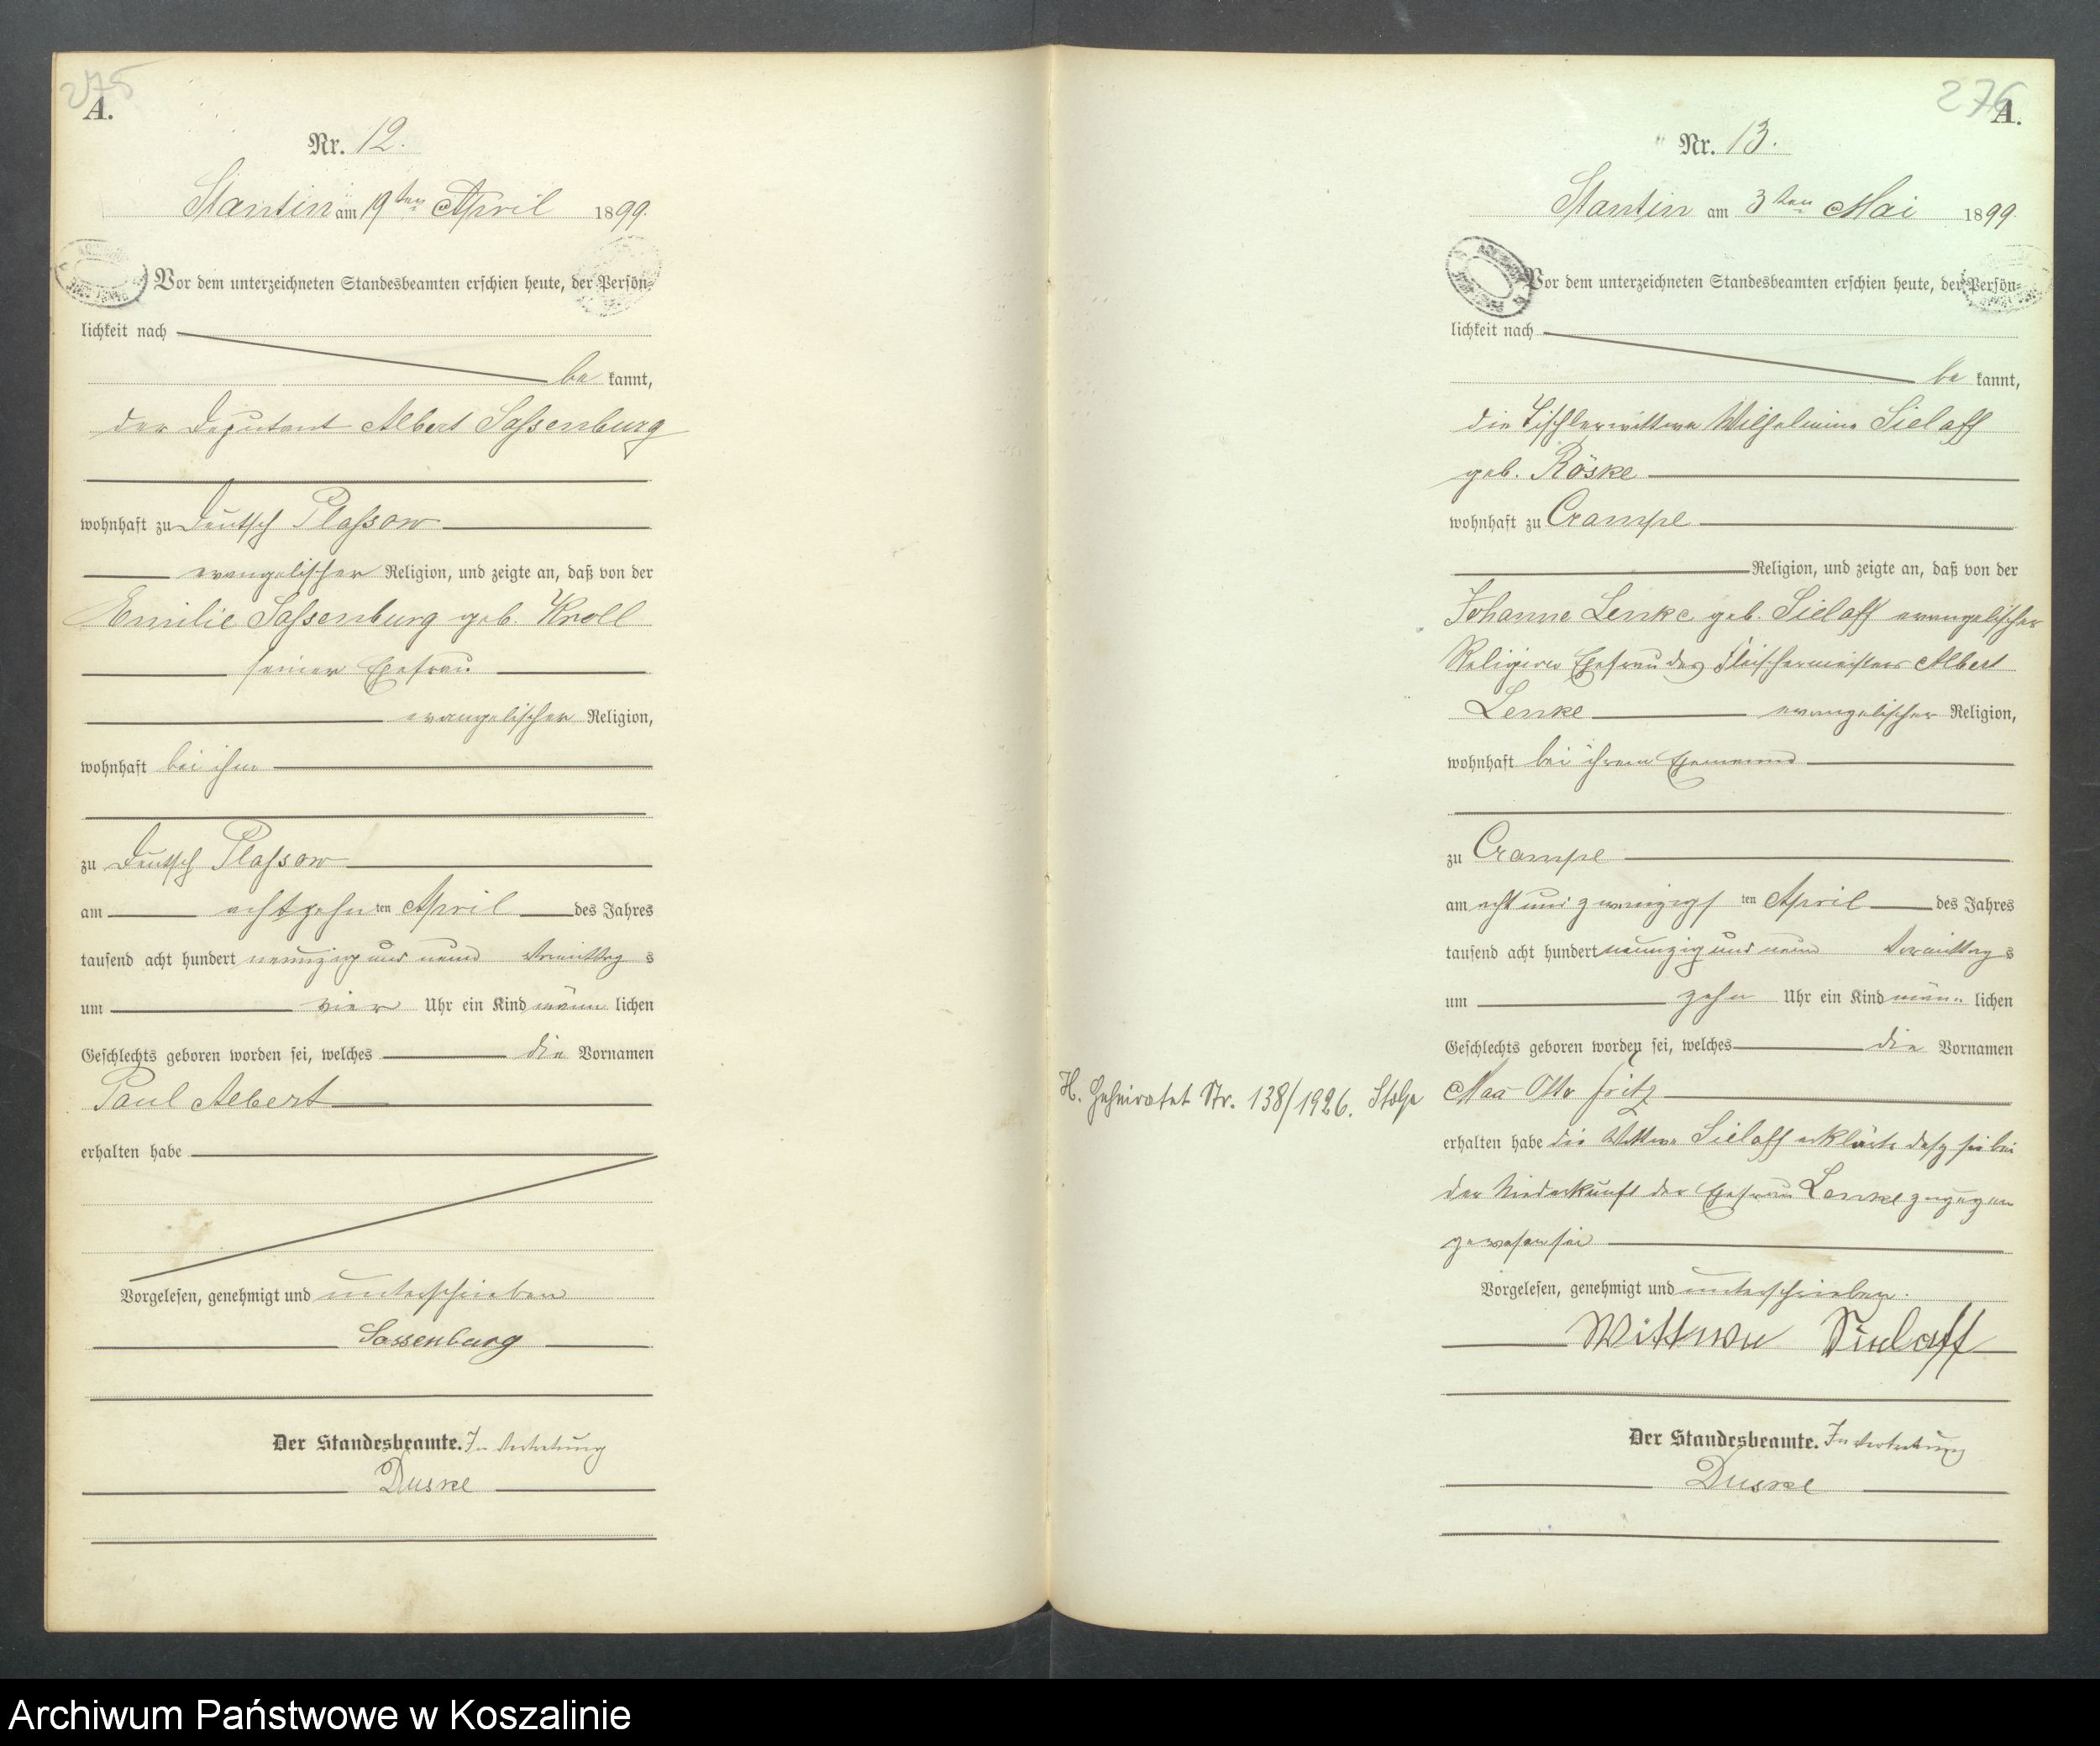 275
A.
Nr. 12.
Stantin am 19ten April 1899.
Vor dem unterzeichneten Standesbeamten erschien heute, der Persön-
lichkeit nach
be kannt,
der Deputant Albert Saßenburg
wohnhaft zu Deutsch Plaßow
evangelischer Religion, und zeigte an, daß von der
Emilie Saßenburg geb. Kroll
seiner Ehefrau
evangelischer Religion,
wohnhaft bei ihm
zu Deutsch Plaßow
am achtzehn ten April des Jahres
tausend acht hundert neunzig und neun Vormittag s
um vier Uhr ein Kind männ lichen
Geschlechts geboren worden sei, welches die Vornamen
Paul Albert
erhalten habe
Vorgelesen, genehmigt und unterschrieben
Sassenburg
Der Standesbeamte. In Vertretung
Duske
276
A.
Nr. 13.
Stantin am 3ten Mai 1899.
Vor dem unterzeichneten Standesbeamten erschien heute, der Persön-
lichkeit nach
be kannt,
die Tischlerwittwe Wilhelmine Sielaff
geb. Röske
wohnhaft zu Crampe
Religion, und zeigte an, daß von der
Johanne Lenke geb. Sielaff evangelischer
Religion Ehefrau des Fleischermeisters Albert
Lenke evangelischer Religion,
wohnhaft bei ihrem Ehemann
zu Crampe
am acht und zwanzigs ten April des Jahres
tausend acht hundert neunzig und neun Vormittag s
um zehn Uhr ein Kind män- lichen
Geschlechts geboren worden sei, welches die Vornamen
H. Geheiratet Nr. 138/1926. Stolp
Max Otto Fritz
erhalten habe die Wittwe Sielaff erklärte daß sie bei
der Niederkunft der Ehefrau Lenke zugegen
gewesen sei
Vorgelesen, genehmigt und unterschrieben.
Wittwe Sielaff
Der Standesbeamte. In Vertretung
Duske
Archiwum Państwowe w Koszalinie